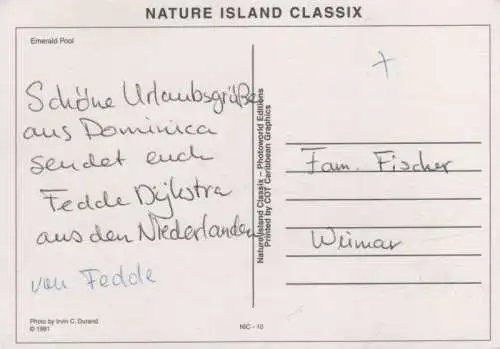 NATURE ISLAND CLASSIX
Emerald Pool
Schöne Urlaubsgrüße
aus Dominica
sendet euch
Fedde Dijkstra
aus den Niederlanden
von Fedde
Nature Island Classix – Photoworld Editions
Printed by COT Caribbean Graphics
Fam. Fischer
Weimar
Photo by Irvin C. Durand
© 1991
NIC - 10